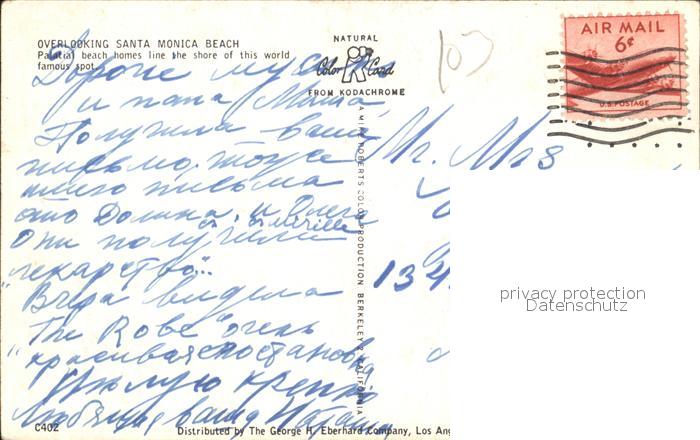 OVERLOOKING SANTA MONICA BEACH
Palatial beach homes line the shore of this world
famous spot.
NATURAL
Color Card
FROM KODACHROME
103
AIR MAIL
6¢
U.S. POSTAGE
Дорогие
и папа Миша,
Получила ваше
письмо, тоже
письма
Долина, и
Они получили
лекарство"..
Вчера видела
"The Robe" очень
красивая постановка
Целую крепко
Любящая ваша
Mr. Mrs
134
MIKE ROBERTS COLOR PRODUCTION BERKELEY 2, CALIFORNIA
privacy protection
Datenschutz
C402
Distributed by The George H. Eberhard Company, Los An